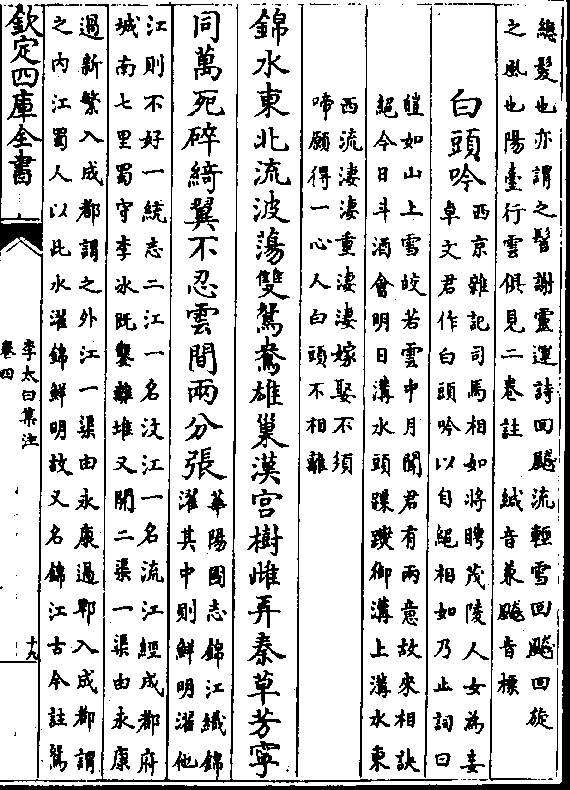 總髮也亦謂之髻謝靈運詩回飈流輕雪回飈回旋
之風也陽臺行雲俱見二巻註 緘音兼飈音標
白頭吟
西京雜記司馬相如將聘茂陵人女為妾
卓文君作白頭吟以自絕相如乃止詞曰
皚如山上雪皎若雲中月聞君有兩意故來相訣
絕今日斗酒㑹明日溝水頭蹀躞御溝上溝水東
西流淒淒重淒淒嫁娶不須
啼願得一心人白頭不相離
錦水東北流波蕩雙鴛鴦雄巢漢宫樹雌弄秦草芳寧
同萬死碎綺翼不忍雲間兩分張
華陽國志錦江織錦
濯其中則鮮明濯他
江則不好一統志二江一名汶江一名流江經成都府
城南七里蜀守李冰既鑿離堆又開二渠一渠由永康
過新繁入成都謂之外江一渠由永康過郫入成都謂
之内江蜀人以此水濯錦鮮明故又名錦江古今註鴛
欽定四庫全書
李太白集注
卷四
十九